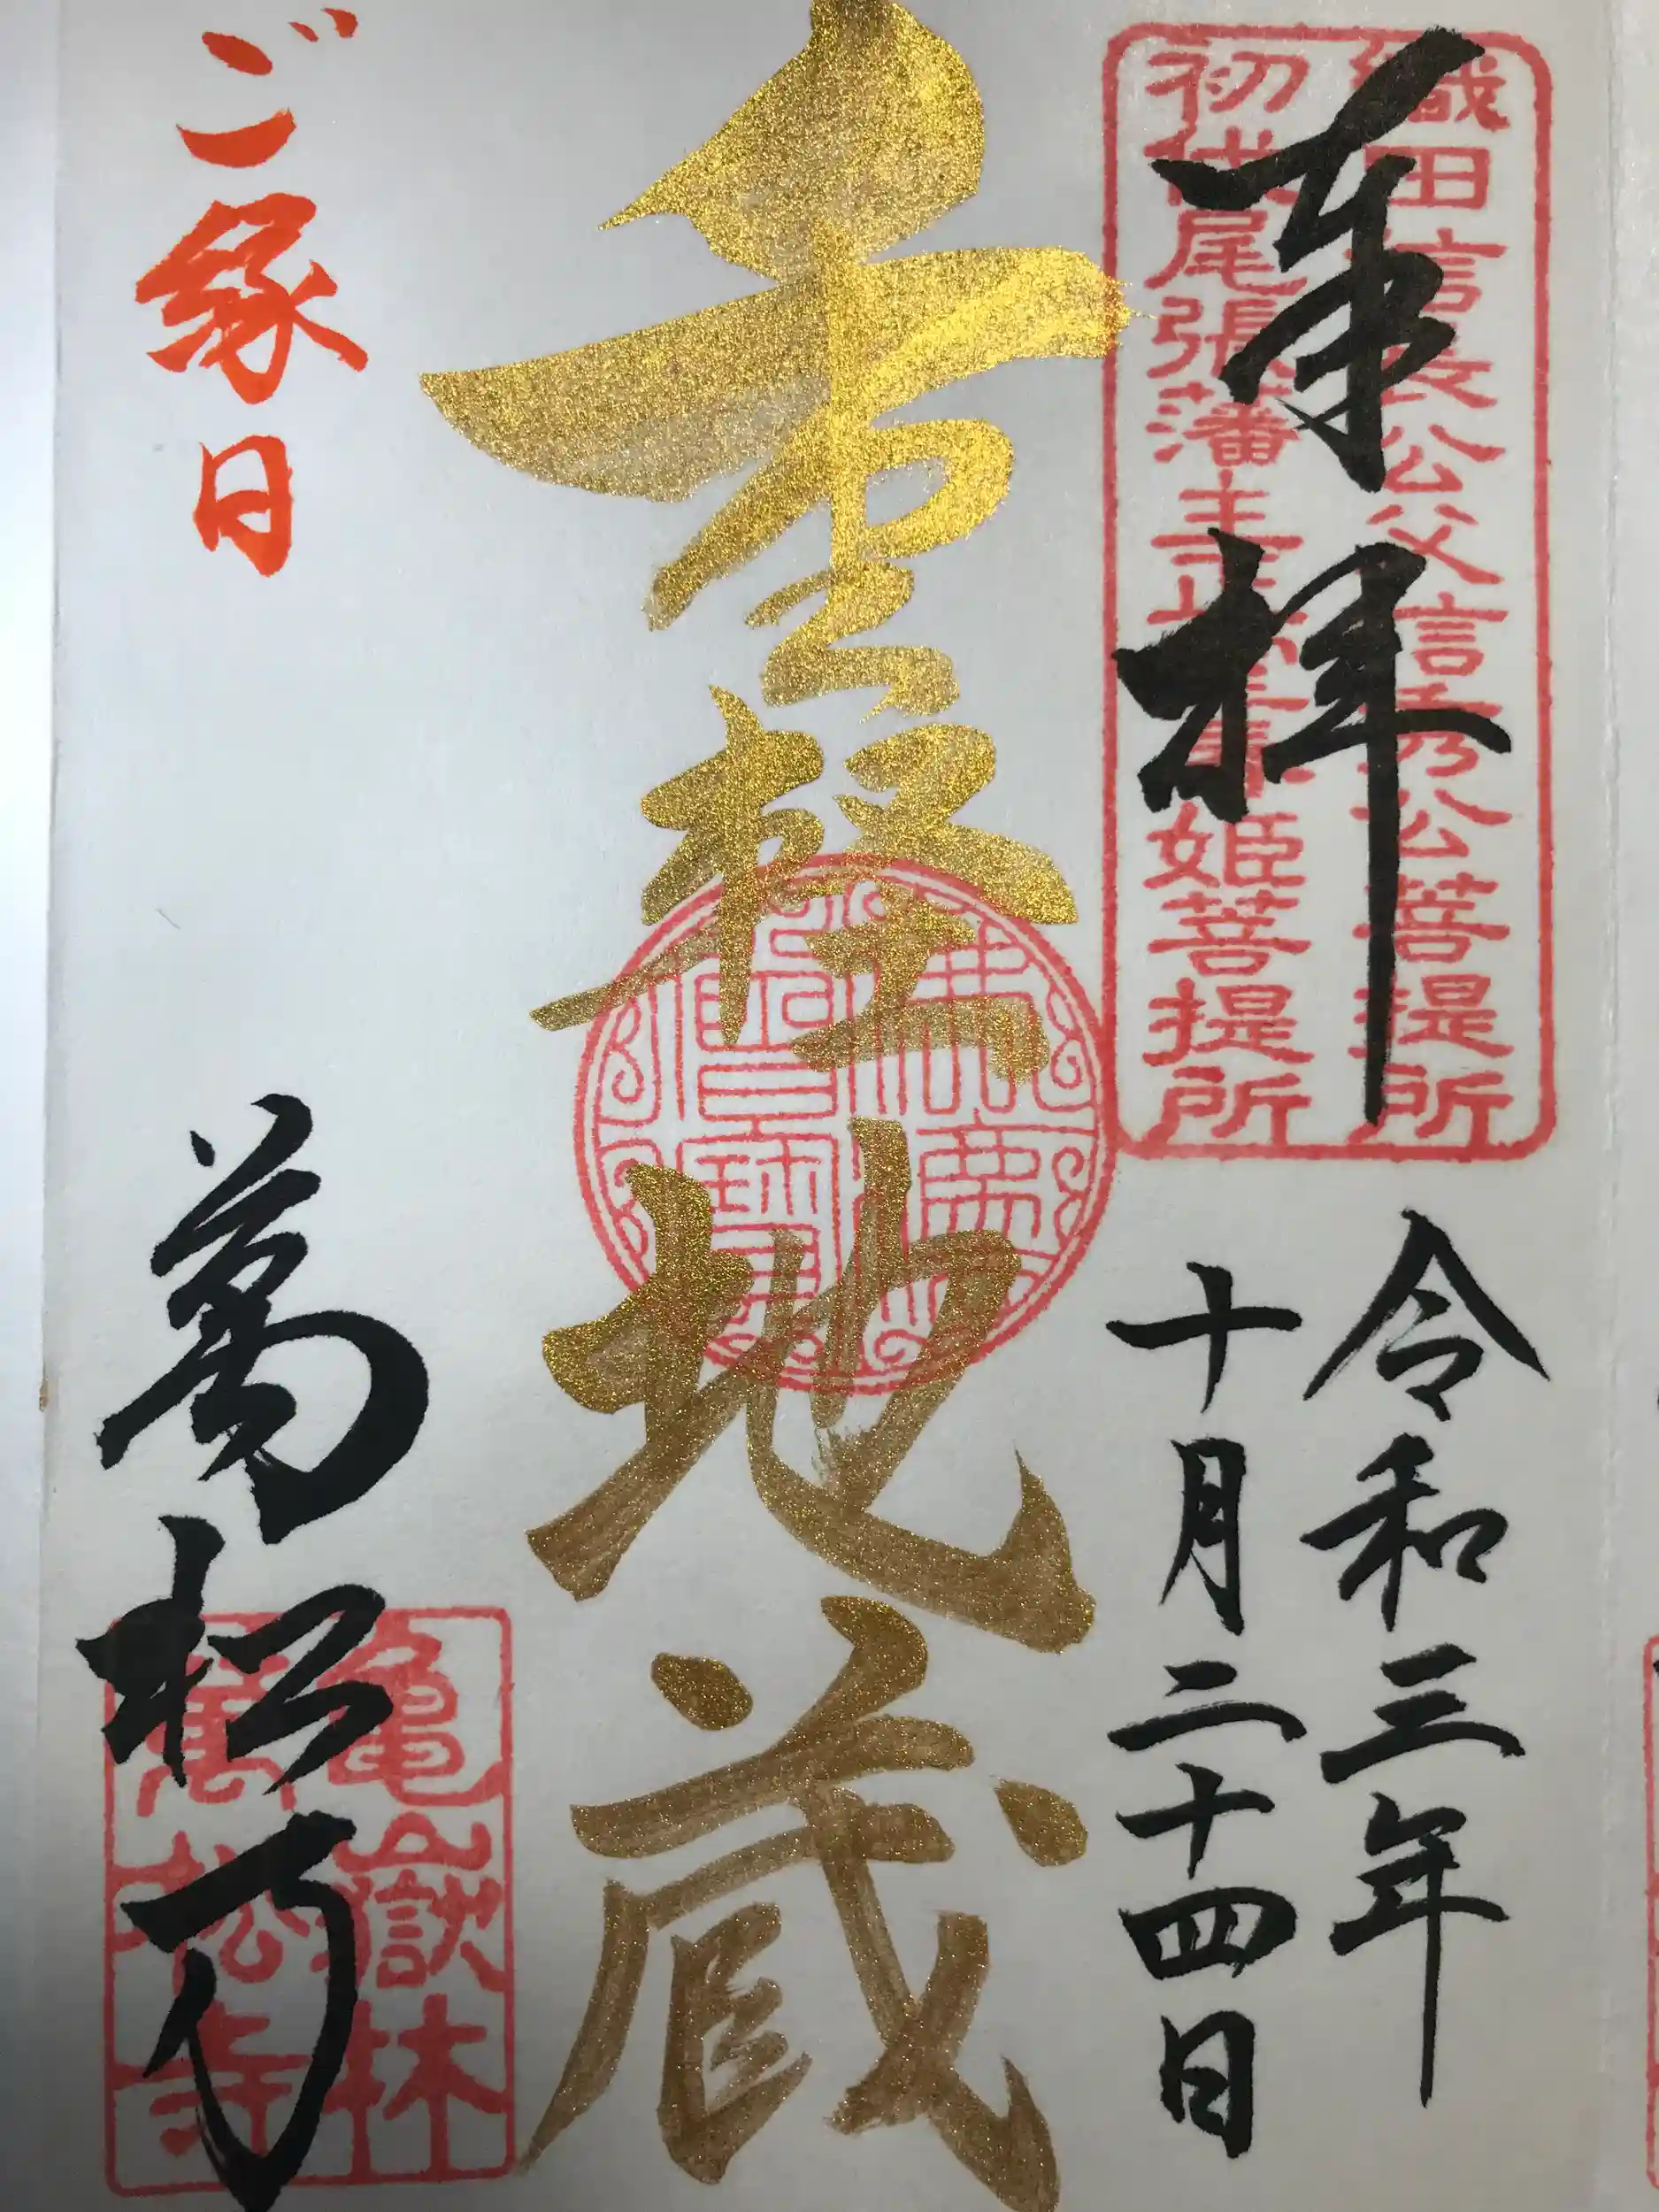 奉拝
織田信長公父信秀公菩提所
初代尾張藩主正室春姫菩提所
令和三年
十月二十四日
重軽地蔵
佛法僧寳
ご縁日
萬松寺
亀嶽林
萬松寺